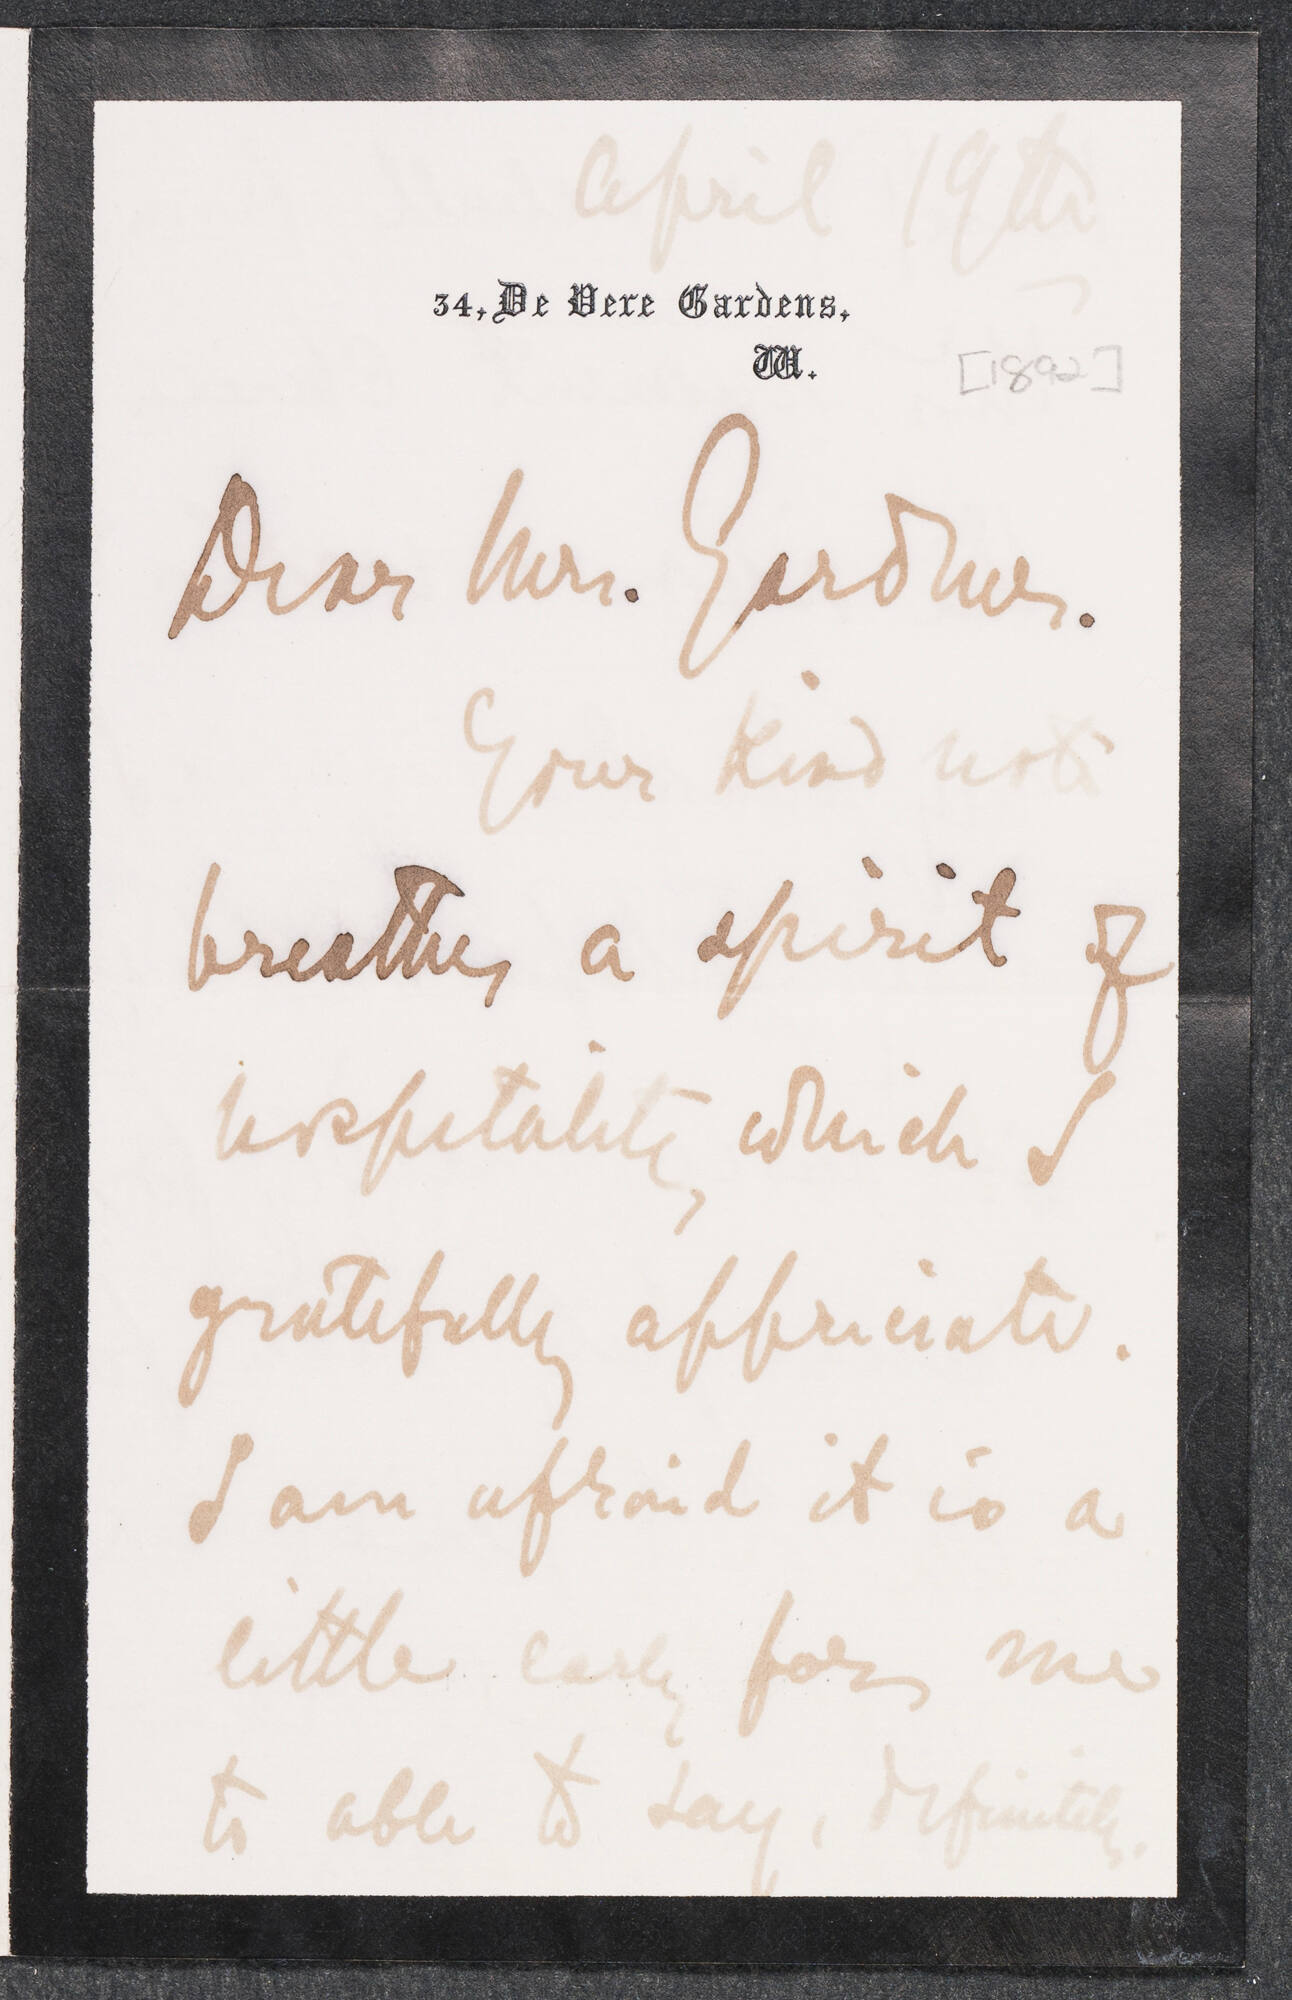 April 19th
34, De Vere Gardens,
W.
[1892]
Dear Mrs. Gardner.
Your kind note
breathes a spirit of
hospitality, which I
gratefully appreciate.
I am afraid it is a
little early for me
to able to say, definitely,